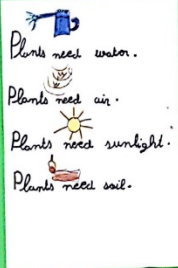 Plants need water.
Plants need air.
Plants need sunlight.
Plants need soil.